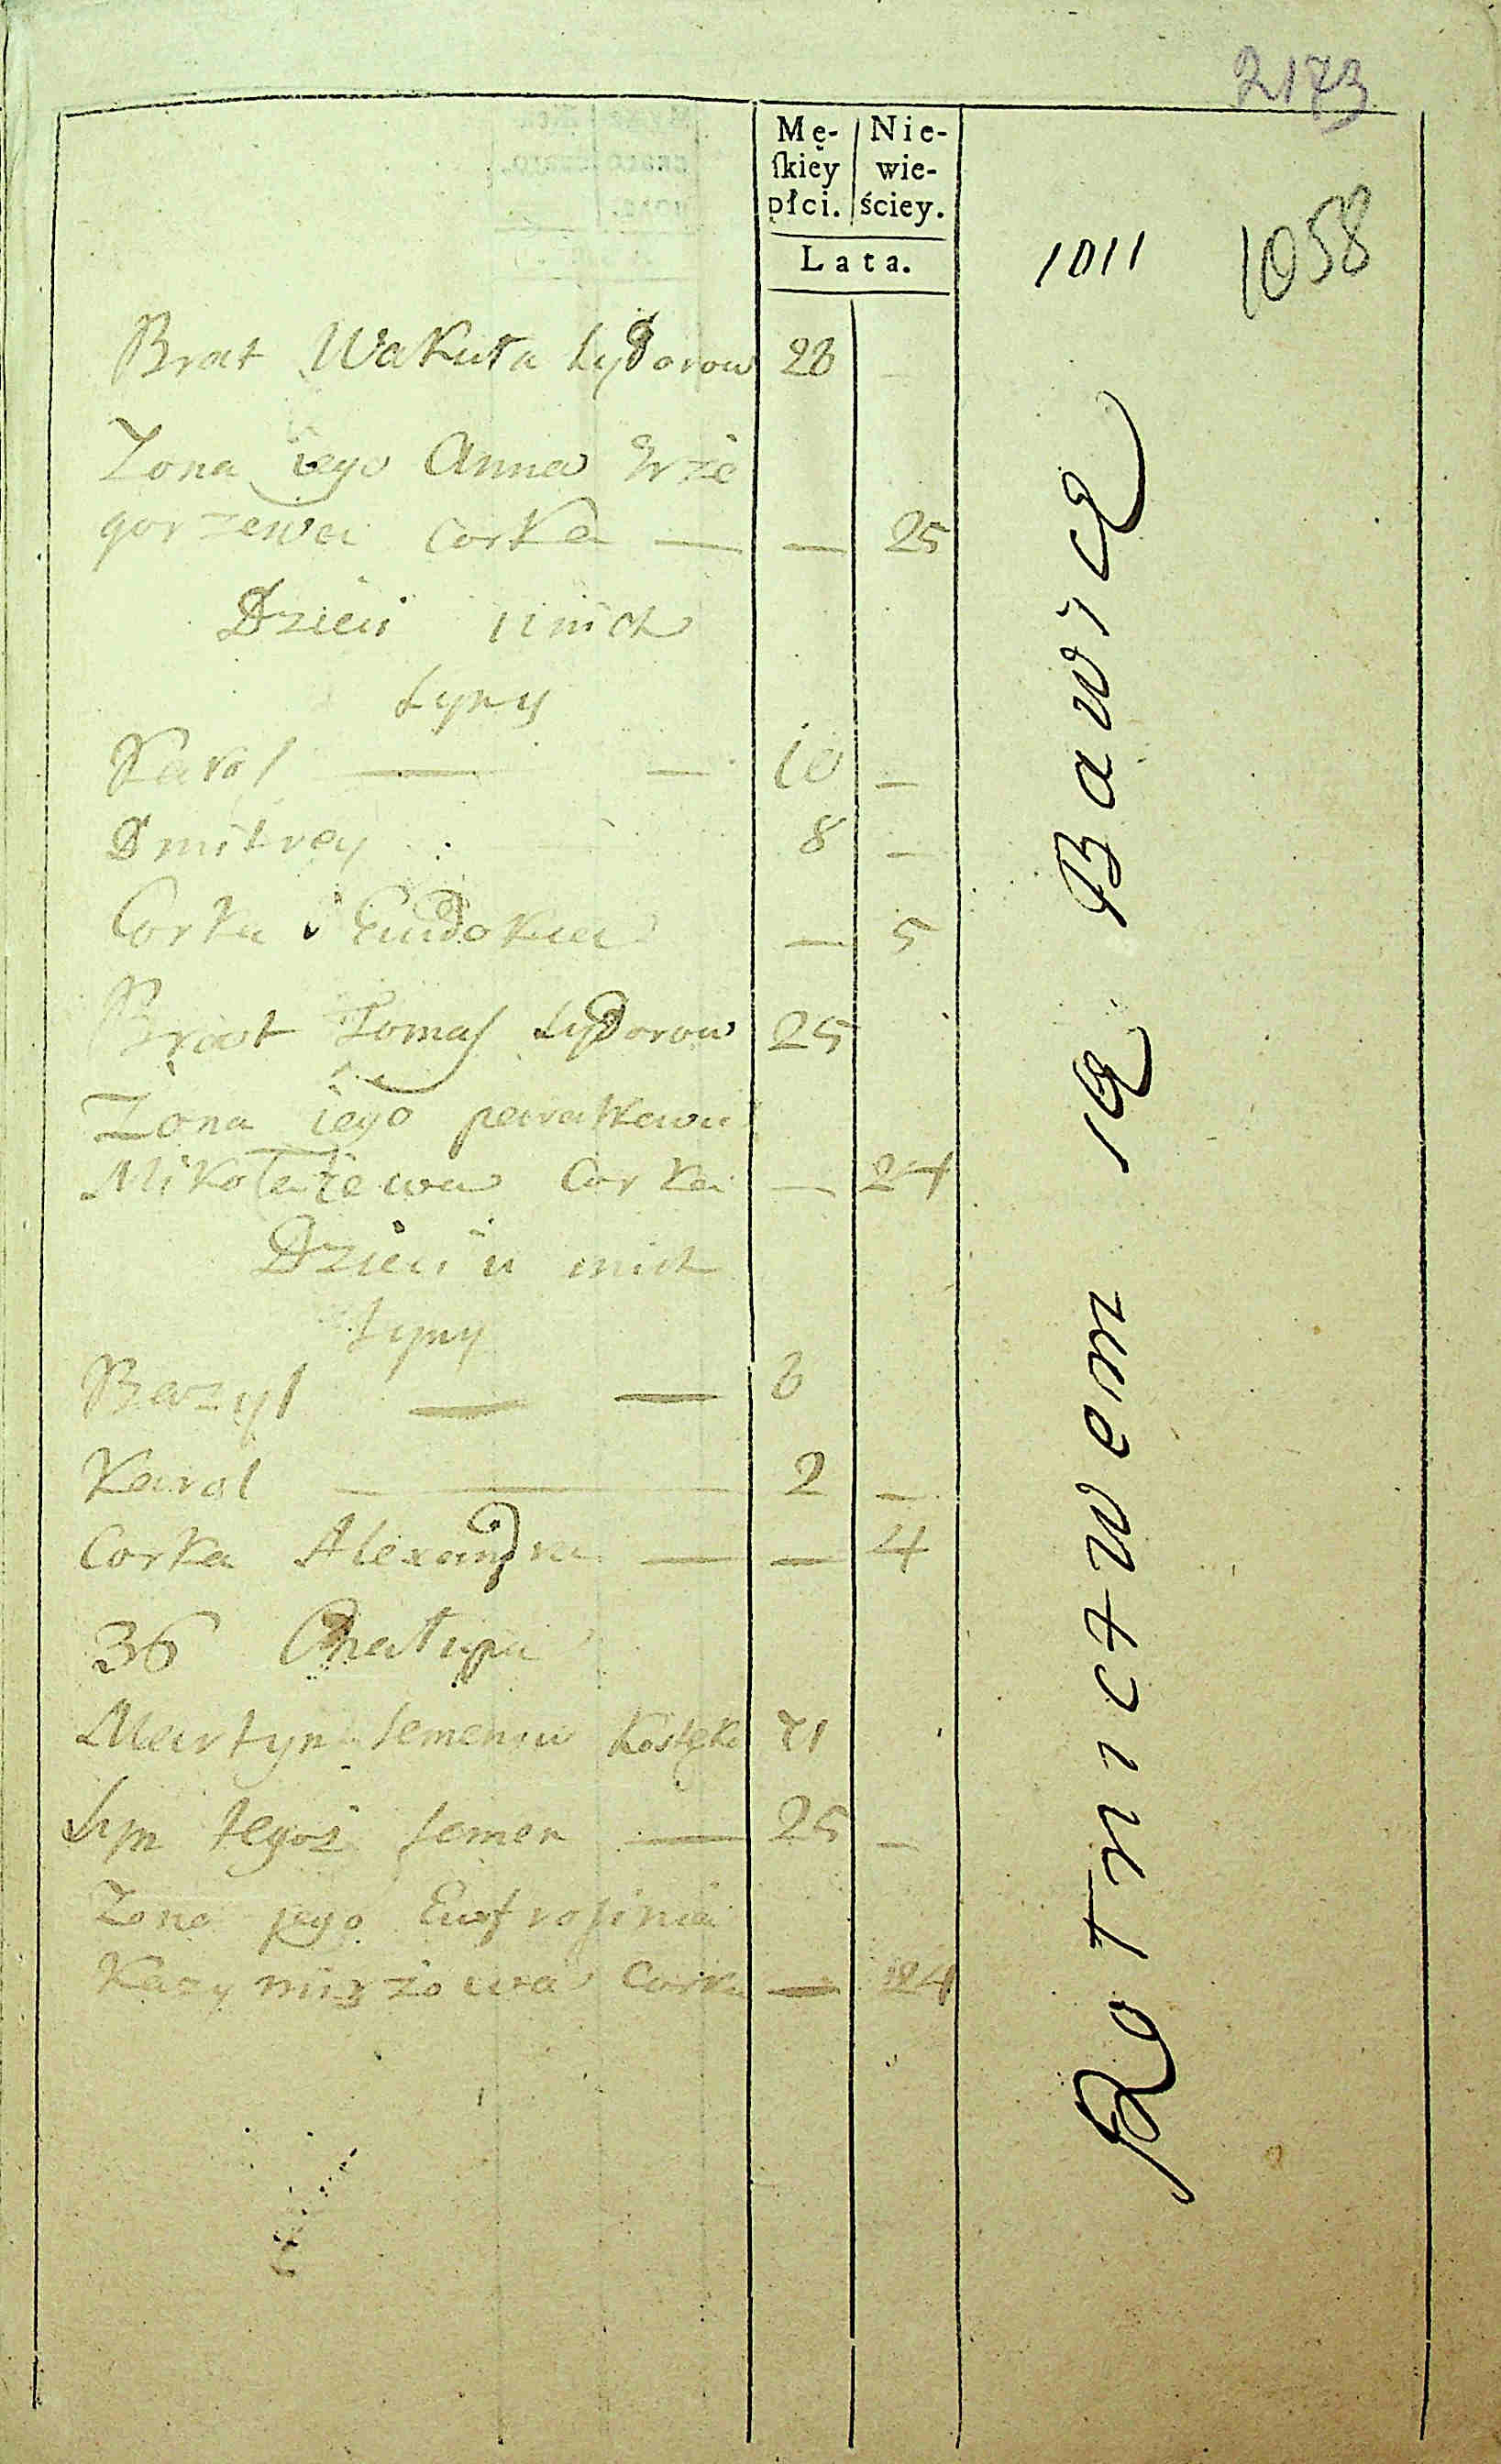 2173
Mę- Nie-
ſkiey wie-
płci. ściey.
Lata.
1011 1058
Brat Wakuła Sydorow 28
Zona iego Anna Grze
gorzewa Corka — — 25
Dzieci u nich
Syny
Karol — — 10 —
Dmitrey 8 —
Corka Eudokia — 5
Brat Tomaſ Sydorow 25
Zona iego paraskewia
Mikołaiewa Corka — 24
Dzieci u nich
Syny
Bazyl — — 6
Karol — 2 —
Corka Alexandra — — 4
36 Chałupa
Martyn Semenow 71
Syn tegoż Semen — 25 —
Zona jego Eufroſinia
Kazymirzowa Corka — 24
Rolnictwem ię Bawią